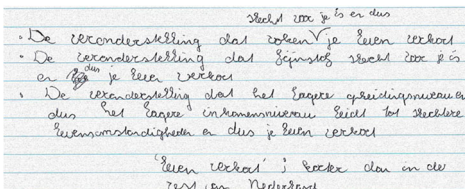 slecht voor je is en dus
· De veronderstelling dat roken √ je leven verkort
· De veronderstelling dat fijnstof slecht voor je is
en dus je leven verkort
· De veronderstelling dat het lagere opleidingsniveau en
dus het lagere inkomensniveau leidt tot slechtere
levensomstandigheden en dus je leven verkort
'leven verkort' ; korter dan in de
rest van Nederland